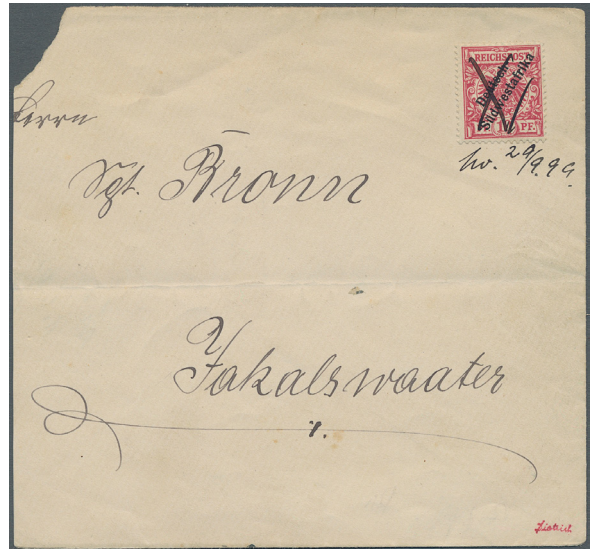 REICHSPOST
Deutsch-
Südwestafrika
10 PF.
Herrn
29/9.99.
Sgt. Bronn
Jakalswaater